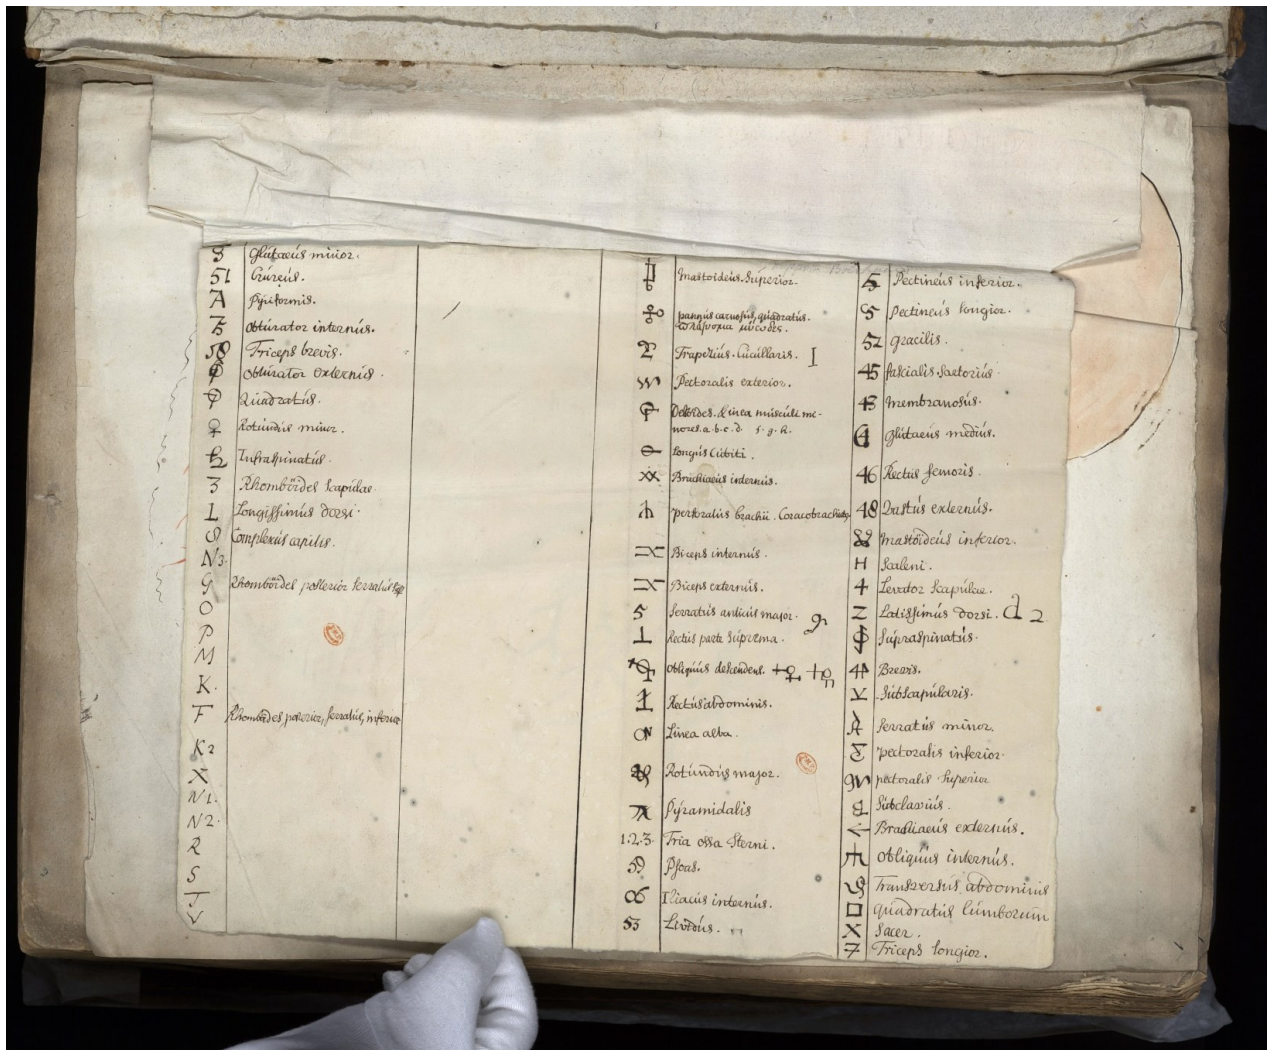 Glutaeus minor.
51 Crureus.
A Pyriformis.
obturator internus.
Triceps brevis.
obturator externus.
Quadratus.
♀ Rotundus minor.
Infraspinatus.
3 Rhomböides scapulae.
Longissimus dorsi.
Complexus capitis.
N3.
G Rhomböides posterior serratus
O
P
M
K.
F Rhomböides posterior, serratus, inferior
K2
X
N1.
N2.
R
S
T
V
Mastoideus. Superior.
pannus carnosus, quadratus.
Trapezius. Cucullaris. I
Pectoralis exterior.
Deltoides. & inea musculi me-
nores. a. b. c. d. f. g. h.
Longus Cubiti.
Brachiaeus internus.
pectoralis brachii. Coracobrachialis
Biceps internus.
Biceps externus.
5 Serratus anticus major.
⊥ Rectus parte suprema.
obliquus descendens.
Rectus abdominis.
Linea alba.
Rotundus major.
Pyramidalis
1.2.3. Tria ossa sterni.
59 Psoas.
06 Iliacus internus.
53 Lividus.
Pectineus inferior.
Pectineus longior.
52 gracilis.
45 fascialis. Sartorius
43 Membranosus.
Glutaeus medius.
46 Rectus femoris.
48 Vastus externus.
Mastoideus inferior.
H Scaleni.
4 Levator scapulae.
Z Latissimus dorsi. d 2
Supraspinatus.
Brevis.
Subscapularis.
Serratus minor.
pectoralis inferior.
pectoralis superior
Subclavius.
Brachiaeus externus.
obliquus internus.
Transversus abdominis
□ quadratus lumborum
X Sacer.
7 Triceps longior.